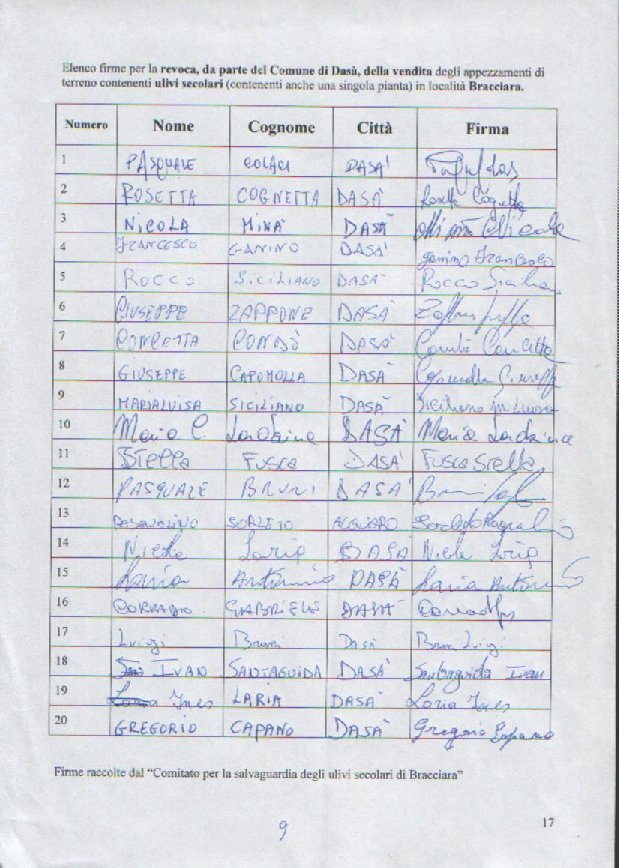 Elenco firme per la revoca, da parte del Comune di Dasà, della vendita degli appezzamenti di
terreno contenenti ulivi secolari (contenenti anche una singola pianta) in località Bracciara.
Numero Nome Cognome Città Firma
1 PASQUALE COLACI DASA'
2 ROSETTA COGNETTA DASA' Rosetta Cognetta
3 NICOLA MINA' DASA' Minà Nicola
4 FRANCESCO GANINO DASA' Ganino Francesco
5 ROCCO SICILIANO DASA' Rocco Siciliano
6 GIUSEPPE ZAPPONE DASA'
7 CONCETTA DASA' Concetta
8 GIUSEPPE CAPOMOLLA DASA'
9 MARIALUISA SICILIANO DASA' Siciliano
10 Maria C. DASÀ Maria
11 Stella Fusca DASA' Fusca Stella
12 PASQUALE BRUNI DASA'
13 PASQUALINO
14 Nicola Loria DASA' Nicola Loria
15 Laria Antonino DASÀ Laria Antonino
16 CORRADO GABRIELE DASA'
17 Luigi Bruni Dasà Bruni Luigi
18 IVAN SANTAGUIDA DASA' Santaguida Ivan
19 Ines LARIA DASA' Loria Ines
20 GREGORIO CAPANO DASA' Gregorio Capano
Firme raccolte dal “Comitato per la salvaguardia degli ulivi secolari di Bracciara”
9
17